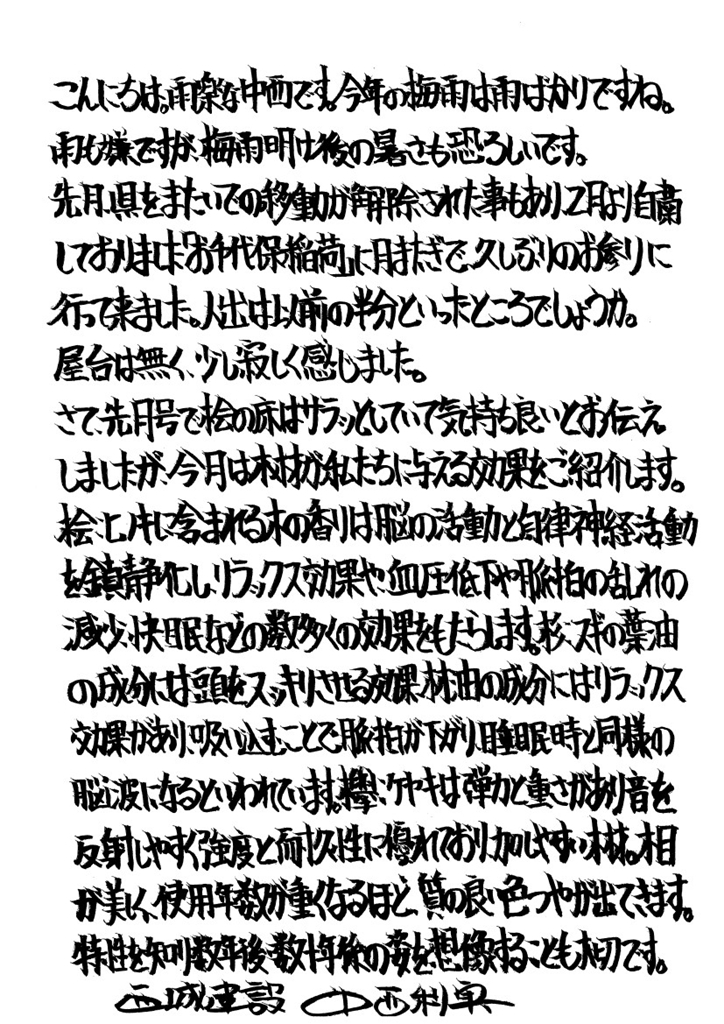 こんにちは。雨楽な中西です。今年の梅雨は雨ばかりですね。
雨も嫌ですが、梅雨明け後の暑さも恐ろしいです。
先月、県をまたいでの移動が解除された事もあり、2月より自粛
しておりました「お千代保稲荷」に月またぎで、久しぶりのお参りに
行って来ました。人出は以前の半分といったところでしょうか。
屋台は無く、少し寂しく感じました。
さて、先月号で桧の床はサラッとしていて気持ち良いとお伝え
しましたが、今月は木材が私たちに与える効果をご紹介します。
桧、ヒノキに含まれる木の香りは脳の活動と自律神経活動
を鎮静化し、リラックス効果や、血圧低下や脈拍の乱れの
減少、快眠などの数多くの効果をもたらします。杉、スギの葉油
の成分には頭をスッキリさせる効果、材油の成分にはリラックス
効果があり、吸い込むことで脈拍が下がり、睡眠時と同様の
脳波になるといわれています。欅、ケヤキは弾力と重さがあり音を
反射しやすく強度と耐久性に優れており加工しやすい材。木目
が美しく、使用年数が重くなるほど、質の良い色つやが出てきます。
特性を知り数年後、数十年後の姿を想像することも大切です。
西城建設 中西利典